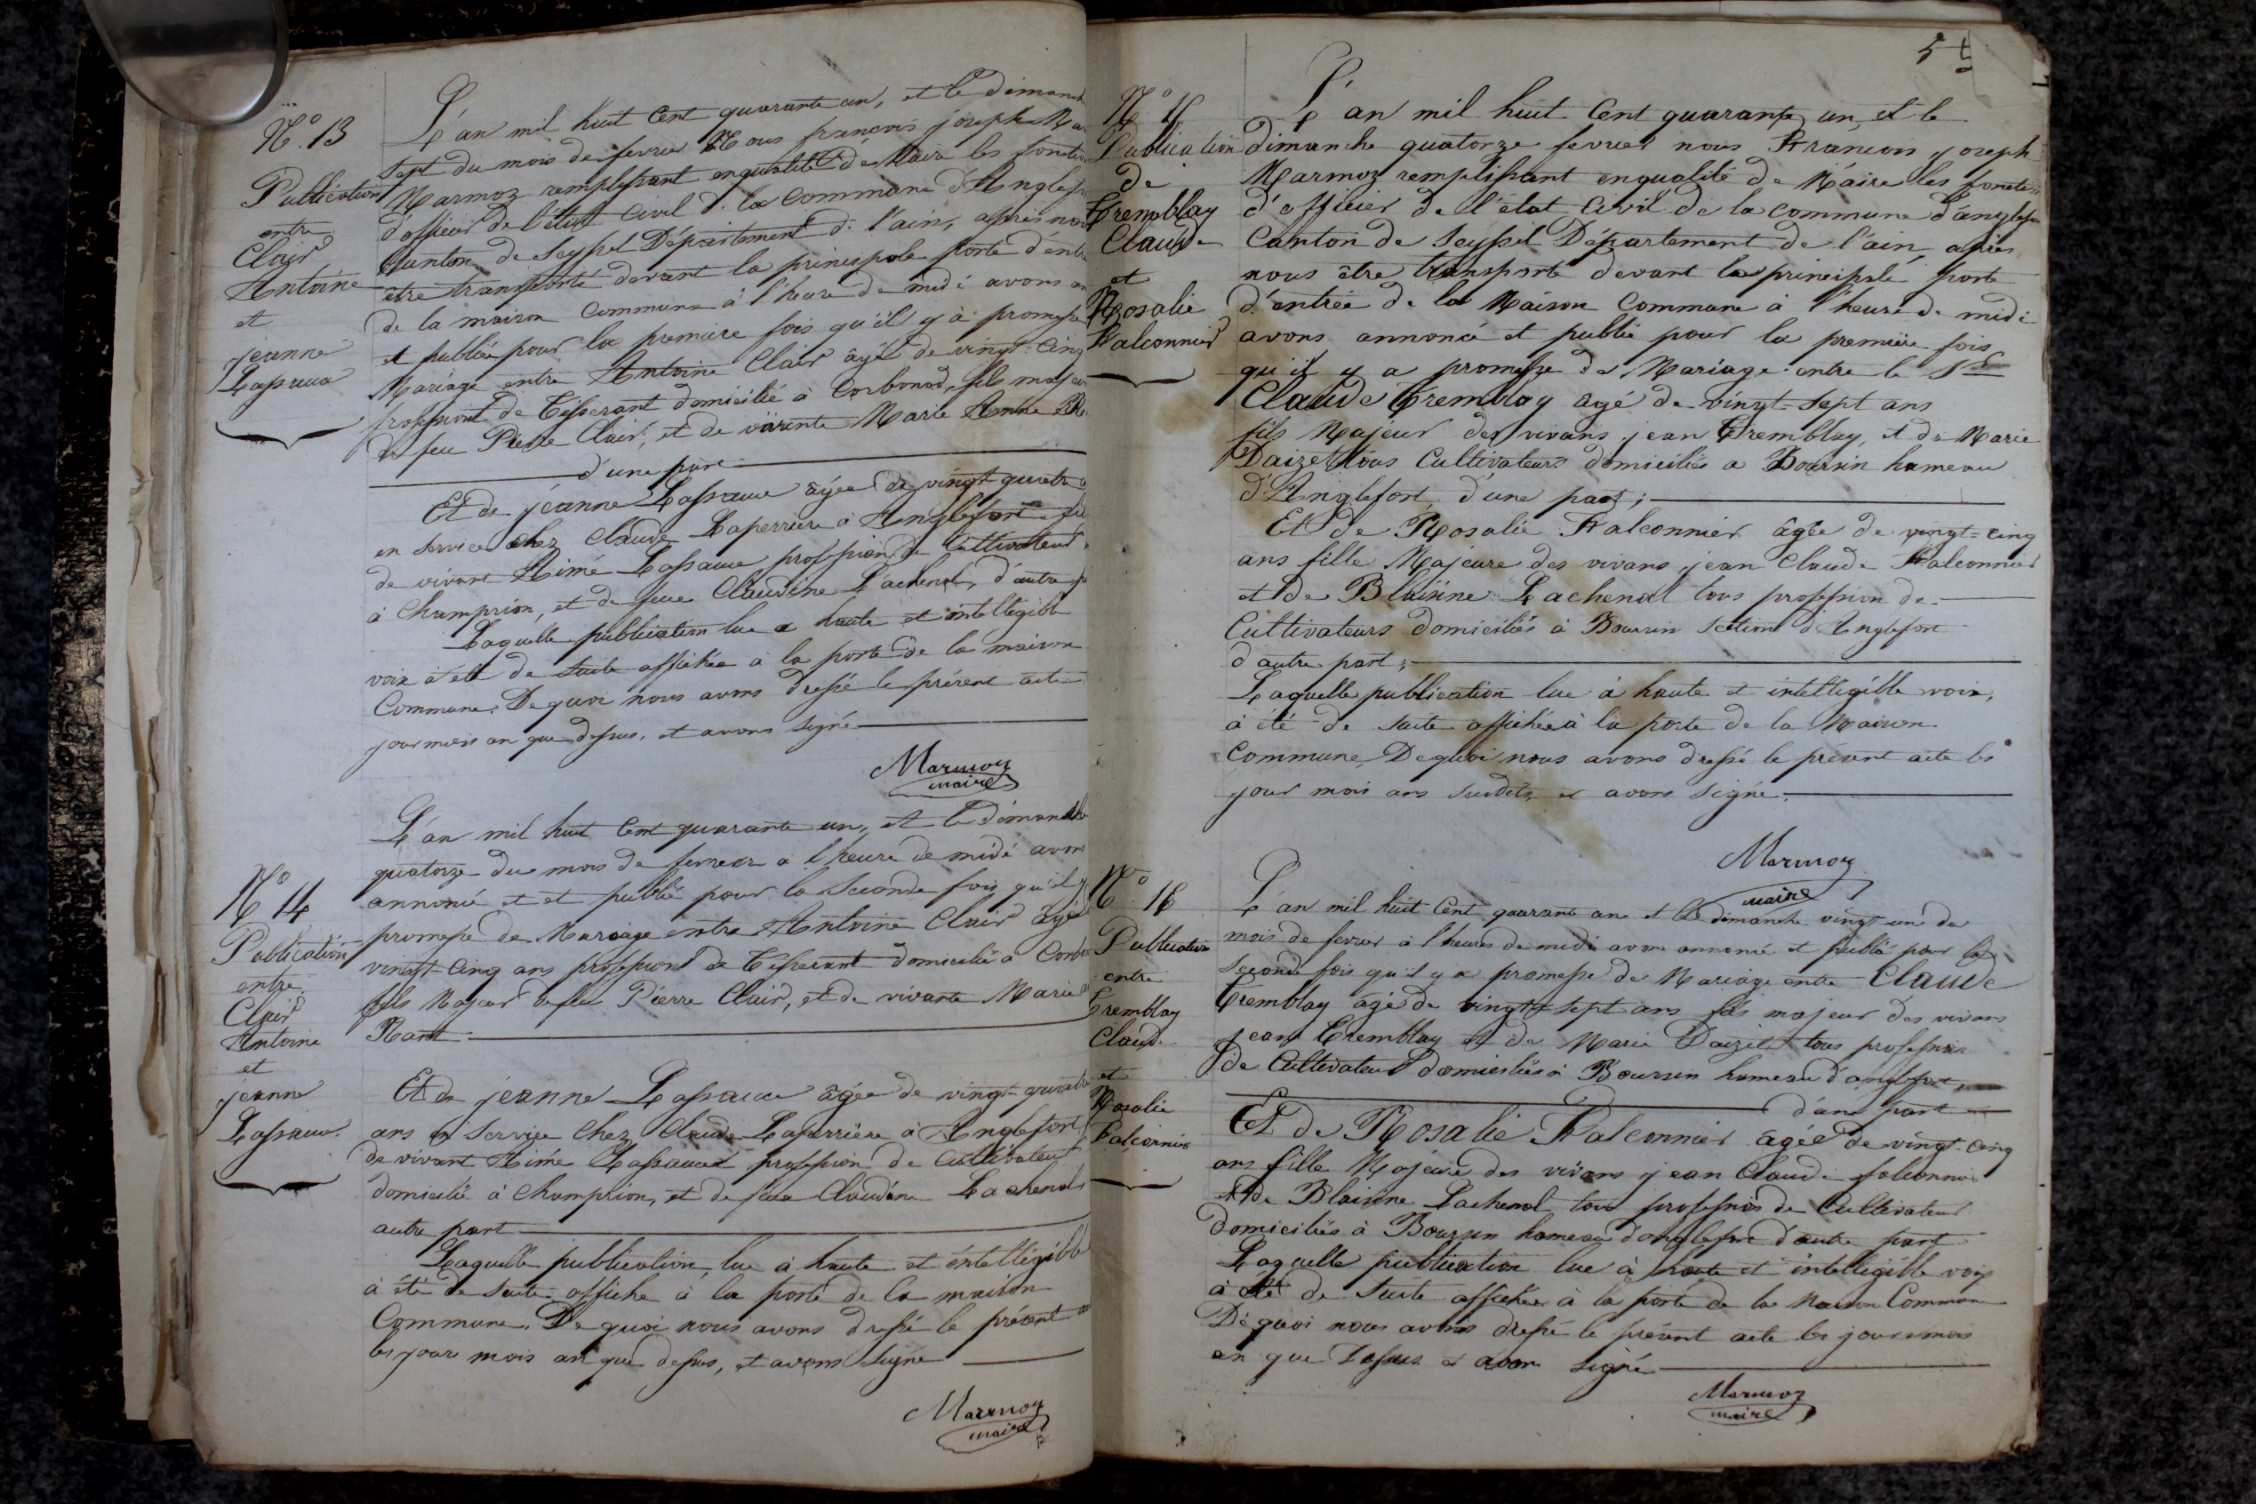 N.° 13
Publication
entre
Clair
Antoine
et
jeanne
Lassauce
L'an mil huit Cent quarante un, et le dimanch
sept du mois de fevrier Nous françois joseph Mar
Marmoz remplissant enqualité de Maire les fonction
d'officier de l'état Civil de la Commune d'Anglefo
Canton de Seyssel Département de l'ain, après nous
être transporté devant la principale porte d'entr
de la maison Commune à l'heure de midi avons an
et publié pour la premiere fois qu'il y à promesse
Mariage entre Antoine Clair âgé de vingt-cinq
profession de Tisserant domicilié à Corbonod, fils majeur
de feu Pierre Clair, et de vivante Marie Anne
d'une part
Et de jéanne Lassauce âgée de vingt quatre a
en service chez Claude Laperriere à Anglefort fille
de vivant Aimé Lassauce profession de Cultivateur
à Champrion, et de feue Claudine Lachenal, d'autre p
Laquelle publication lue a haute et intelligible
voix à été de suite affichée à la porte de la maison
Commune. De quoi nous avons dressé le présent acte
jour mois an que dessus, et avons signé
Marmoz
maire
N.° 14
Publication
entre
Clair
Antoine
et
jeanne
Lassauce
L'an mil huit Cent quarante un, et le dimanche
quatorze du mois de fevrier a l'heure de midi avons
annoncé et et publié pour la Seconde fois qu'il y
promesse de Mariage entre Antoine Clair âgé
vingt-Cinq ans profession de Tisserant domicilié a Corbo
fils Majeur defeu Pierre Clair, et de vivante Marie
Et de jeanne Lassauce âgée de vingt-quatre
ans en Service Chez Claude Laperrière à Anglefort
de vivant Aimé Lassauce profession de Cultivateur
domicilié à Champrion, et de feue Claudine Lachenal
autre part
Laquelle publication, lue à haute et intelligible
à été de suite affiche à la porte de la maison
Commune. De quoi nous avons dressé le présent
les jour mois an que dessus, et avons signé
Marmoz
maire
5
N.° 15
Publication
de
Tremblay
Claude
et
Rosalie
Falconnier
L'an mil huit Cent quarante un, et le
dimanche quatorze fevrier nous Francois joseph
Marmoz remplissant enqualité de Maire les fonction
d'officier de l'état Civil de la commune d'anglefo
Canton de Seyssel Département de l'ain, après
nous être transporté devant la principale porte
d'entrée de la Maison Commune à l'heure de midi
avons annoncé et publié pour la première fois
qu'il y a promesse de Mariage entre le Sr
Claude Tremblay agé de vingt-sept ans
fils Majeur des vivans jean Tremblay, et de Marie
Daizet tous Cultivateurs domiciliés a Boursin hameau
d'Anglefort, d'une part;
Et de Rosalie Falconnier âgée de vingt-cinq
ans fille Majeure des vivans jean Claude Falconnier
et de Blaisine Lachenal tous profession de
Cultivateurs domiciliés à Boursin Section d'Anglefort
d'autre part;
Laquelle publication lue à haute et intelligible voix,
à été de suite affichée à la porte de la Maison
Commune, De quoi nous avons dressé le présent acte les
jour mois ans susdits, et avons signé.
Marmoz
maire
N.° 16
Publication
entre
Tremblay
Claude
et
Rosalie
Falconnier
L'an mil huit Cent quarante un et le dimanche vingt-un de
mois de fevrier à l'heure de midi avons annoncé et publié pour la
seconde fois qu'il y a promesse de Mariage entre Claude
Tremblay âgé de vingt-sept ans fils majeur des vivans
jean Tremblay et de Marie Daizet tous profession
de Cultivateur domiciliés à Boursin hameau d'anglefort
d'une part
Et de Rosalie Falconnier âgée de vingt-cinq
ans fille Majeure des vivans jean Claude falconnier
et de Blaisine Lachenal tous profession de Cultivateur
domiciliés à Boursin hameau d'anglefort d'autre part
Laquelle publication lue à haute et intelligible voix
à été de Suite affichée à la porte de la Maison Commune
De quoi nous avons dressé le présent acte les jour mois
an que dessus et avons signé
Marmoz
maire